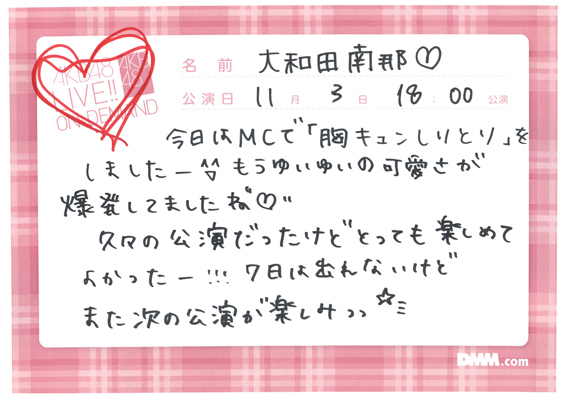 AKB48
LIVE!!
ON DEMAND
AKB
48
名前 大和田南那♡
公演日 11月 3日 18:00 公演
今日はMCで「胸キュンしりとり」を
しましたー もうゆいゆいの可愛さが
爆発してましたね♡
久々の公演だったけどとっても楽しめて
よかったー!!! 7日は出れないけど
また次の公演が楽しみっっ☆
DMM.com